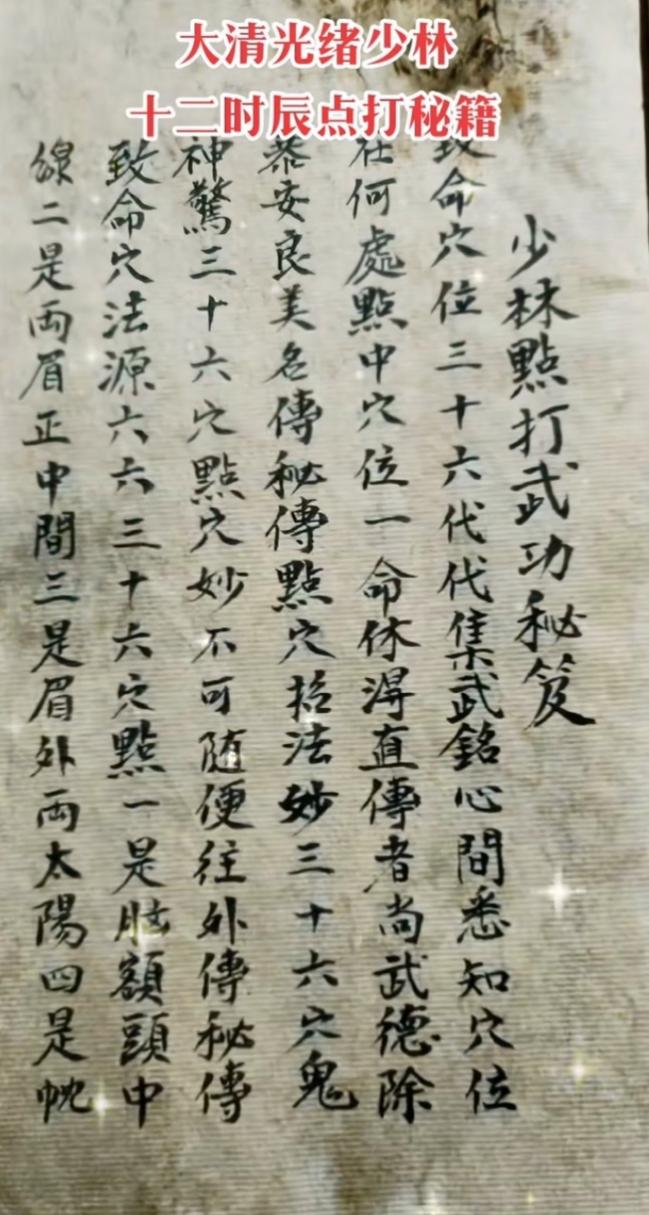 大清光绪少林
十二时辰点打秘籍
少林點打武功秘笈
致命穴位三十六代代集武銘心間悉知穴位
在何處點中穴位一命休得直傳者尚武德除
恭安良美名傳秘傳點穴指法妙三十六穴鬼
神驚三十六穴點穴妙不可随便往外傳秘傳
致命穴法源六六三十六穴點一是腦額頭中
線二是両眉正中間三是眉外両太陽四是